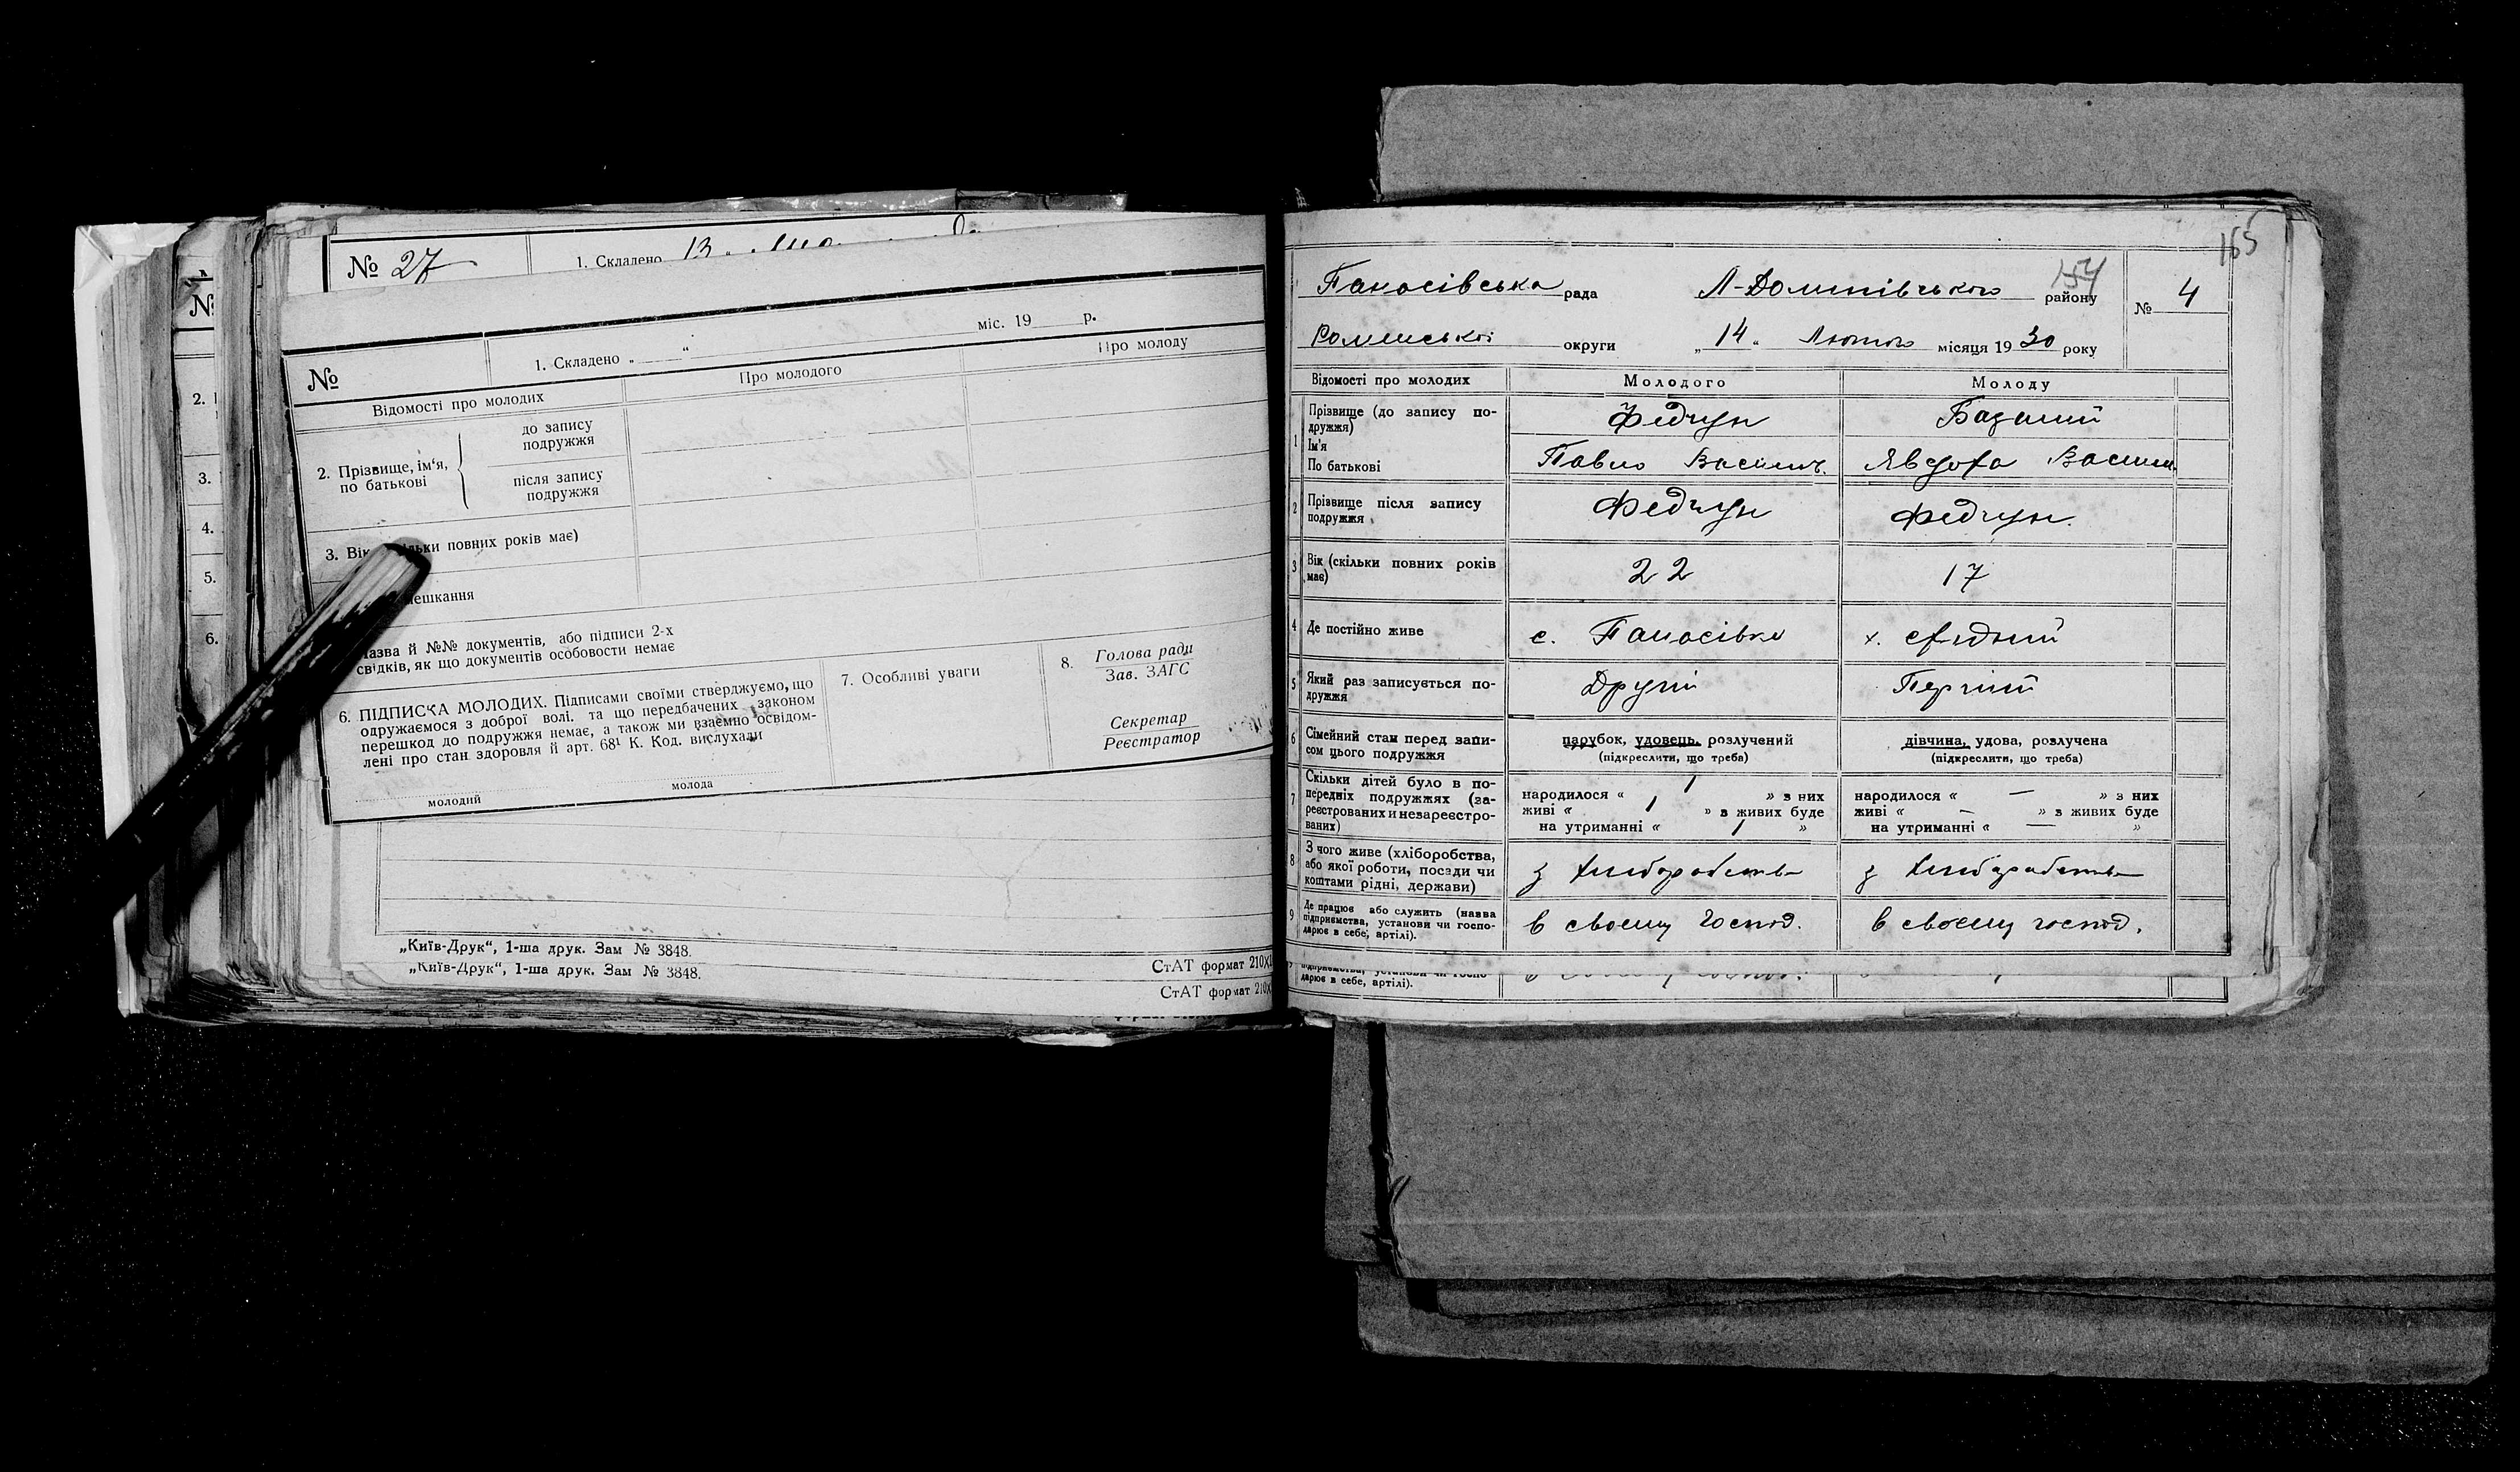 № 27
1. Складено 13
№
1. Складено „ “ міс. 19 р.
Відомості про молодих
Про молодого
Про молоду
2. Прізвище, ім‘я, по батькові
до запису подружжя
після запису подружжя
3. Вік повних років має)
Назва й №№ документів, або підписи 2-х
свідків, як що документів особовости немає
6. ПІДПИСКА МОЛОДИХ. Підписами своїми стверджуємо, що
одружаємося з доброї волі, та що передбачених законом
перешкод до подружжя немає, а також ми взаємно освідом-
лені про стан здоровля й арт. 68¹ К. Код. вислухали
молодий
молода
7. Особливі уваги
8. Голова ради
Зав. ЗАГС
Секретар
Реєстратор
„Київ-Друк“, 1-ша друк. Зам № 3848.
СтАТ формат 210X
„Київ-Друк“, 1-ша друк. Зам № 3848.
СтАТ формат 210X
№
2.
3.
4.
5.
6.
165
154
Панасівська рада Л-Долинівського району
№ 4
Роменської округи „14“ Лютого місяця 1930 року
Відомості про молодих
Молодого
Молоду
1 Прізвище (до запису по-
дружжя)
Ім'я
По батькові
Федчун
Павло Василь.
Базилий
Явдоха Васили.
2 Прізвище після запису
подружжя
Федчун
Федчун.
3 Вік (скільки повних років
має)
22
17
4 Де постійно живе
с. Панасівка
х.
5 Який раз записується по-
дружжя
Другий
Перший
6 Сімейний стан перед запи-
сом цього подружжя
парубок, удовець, розлучений
(підкреслити, що треба)
дівчина, удова, розлучена
(підкреслити, що треба)
7 Скільки дітей було в по-
передніх подружжях (за-
реєстрованих и незареєстро-
ваних)
народилося « 1 » з них
живі « 1 » з живих буде
на утриманні « 1 »
народилося « — » з них
живі « — » з живих буде
на утриманні « — »
8 З чого живе (хліборобства,
або якої роботи, посади чи
коштами рідні, держави)
з хліборобства
з хліборобства
9 Де працює або служить (назва
підприємства, установи чи госпо-
дарює в себе, артілі).
в своему господ.
в своему господ.
підприємства, установи чи госпо-
дарює в себе, артілі).